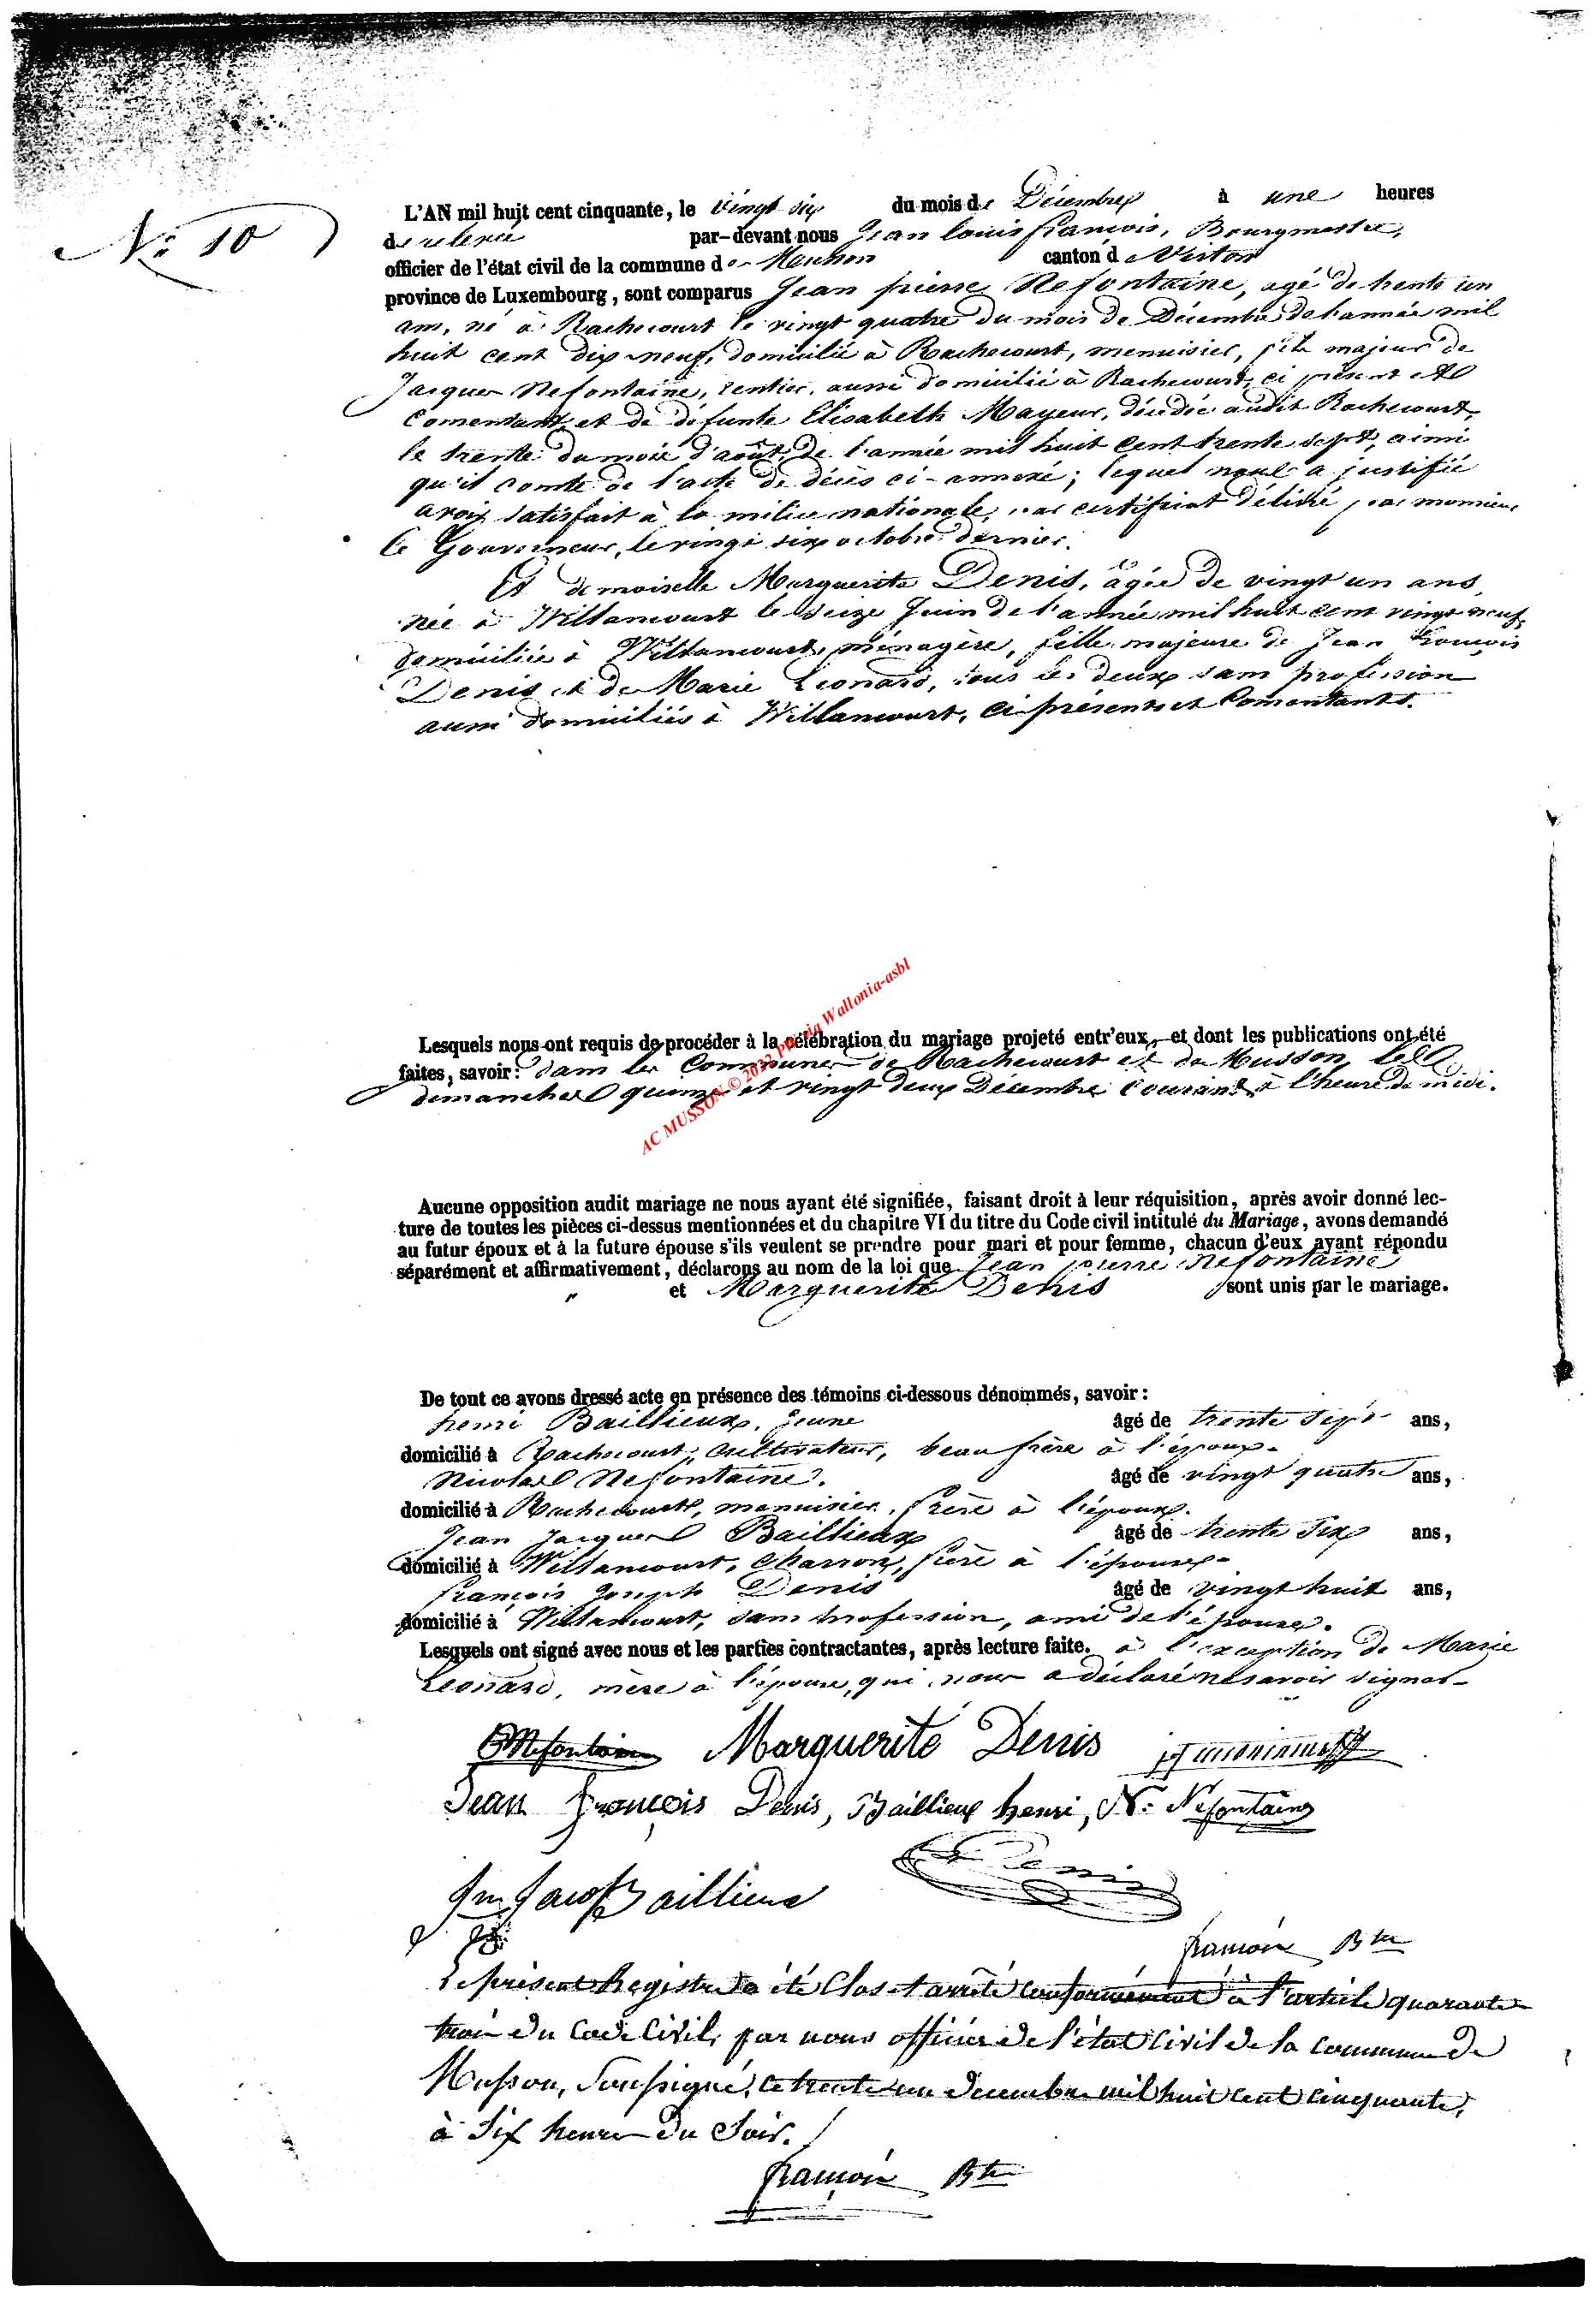 N.° 10
L'AN mil huit cent cinquante, le vingt six du mois de Décembre à une heures
de relevée par-devant nous Jean Louis françois, Bourgmestre,
officier de l'état civil de la commune de Musson canton de Virton
province de Luxembourg, sont comparus Jean pierre Nefontaine, agé de trente un
ans, né à Rachecourt le vingt quatre du mois de Décembre de l'année mil
huit cent dix neuf, domicilié à Rachecourt, menuisier, fils majeur de
Jacques Nefontaine, rentier, aussi domicilié à Rachecourt, ci présent et
Consentant, et de défunte Elisabeth Mayeur, décédée audit Rachecourt,
le trente du mois d'août de l'année mil huit cent trente sept, ainsi
qu'il conste de l'acte de décès ci-annexé; lequel nous a justifié
avoir satisfait à la milice nationale, par certificat délivré par monsieur
le Gouverneur, le vingt six octobre dernier.
Et demoiselle Marguerite Denis, âgée de vingt un ans,
née à Willancourt le seize Juin de l'année mil huit cent vingt neuf,
domiciliée à Willancourt, ménagère, fille majeure de Jean françois
Denis et de Marie Leonard, tous les deux sans profession
aussi domiciliés à Willancourt, ci présents et Consentants.
Lesquels nous ont requis de procéder à la célébration du mariage projeté entr'eux, et dont les publications ont été
faites, savoir: dans les Communes de Rachecourt et de Musson, les
dimanches quinze et vingt deux Décembre courant à l'heure de midi.
AC MUSSON © 2022 Wallonia-asbl
Aucune opposition audit mariage ne nous ayant été signifiée, faisant droit à leur réquisition, après avoir donné lec-
ture de toutes les pièces ci-dessus mentionnées et du chapitre VI du titre du Code civil intitulé du Mariage, avons demandé
au futur époux et à la future épouse s'ils veulent se prendre pour mari et pour femme, chacun d'eux ayant répondu
séparément et affirmativement, déclarons au nom de la loi que Jean pierre Nefontaine
et Marguerite Denis sont unis par le mariage.
De tout ce avons dressé acte en présence des témoins ci-dessous dénommés, savoir:
henri Baillieux, jeune âgé de trente sept ans,
domicilié à Rachecourt, cultivateur, beau frère à l'époux.
Nicolas Nefontaine. âgé de vingt quatre ans,
domicilié à Rachecourt, menuisier, frère à l'époux.
Jean Jacques Baillieux âgé de trente six ans,
domicilié à Willancourt, charron, frère à l'épouse.
françois Joseph Denis âgé de vingt huit ans,
domicilié à Willancourt, sans profession, ami de l'épouse.
Lesquels ont signé avec nous et les parties contractantes, après lecture faite. à l'exception de Marie
Leonard, mère à l'épouse, qui nous a déclaré ne savoir signer.
Nefontaine Marguerite Denis
Jean françois Denis, Baillieux henri, N. Nefontaine
Jn Jacq Baillieux Denis
françois Btre
Le présent Registre a été Clos et arrêté conformément à l'article quarante
trois du Code Civil, par nous officier de l'état Civil de la commune de
Musson, Soussigné, ce trente un decembre mil huit cent cinquante,
à Six heures du Soir.
françois Btre